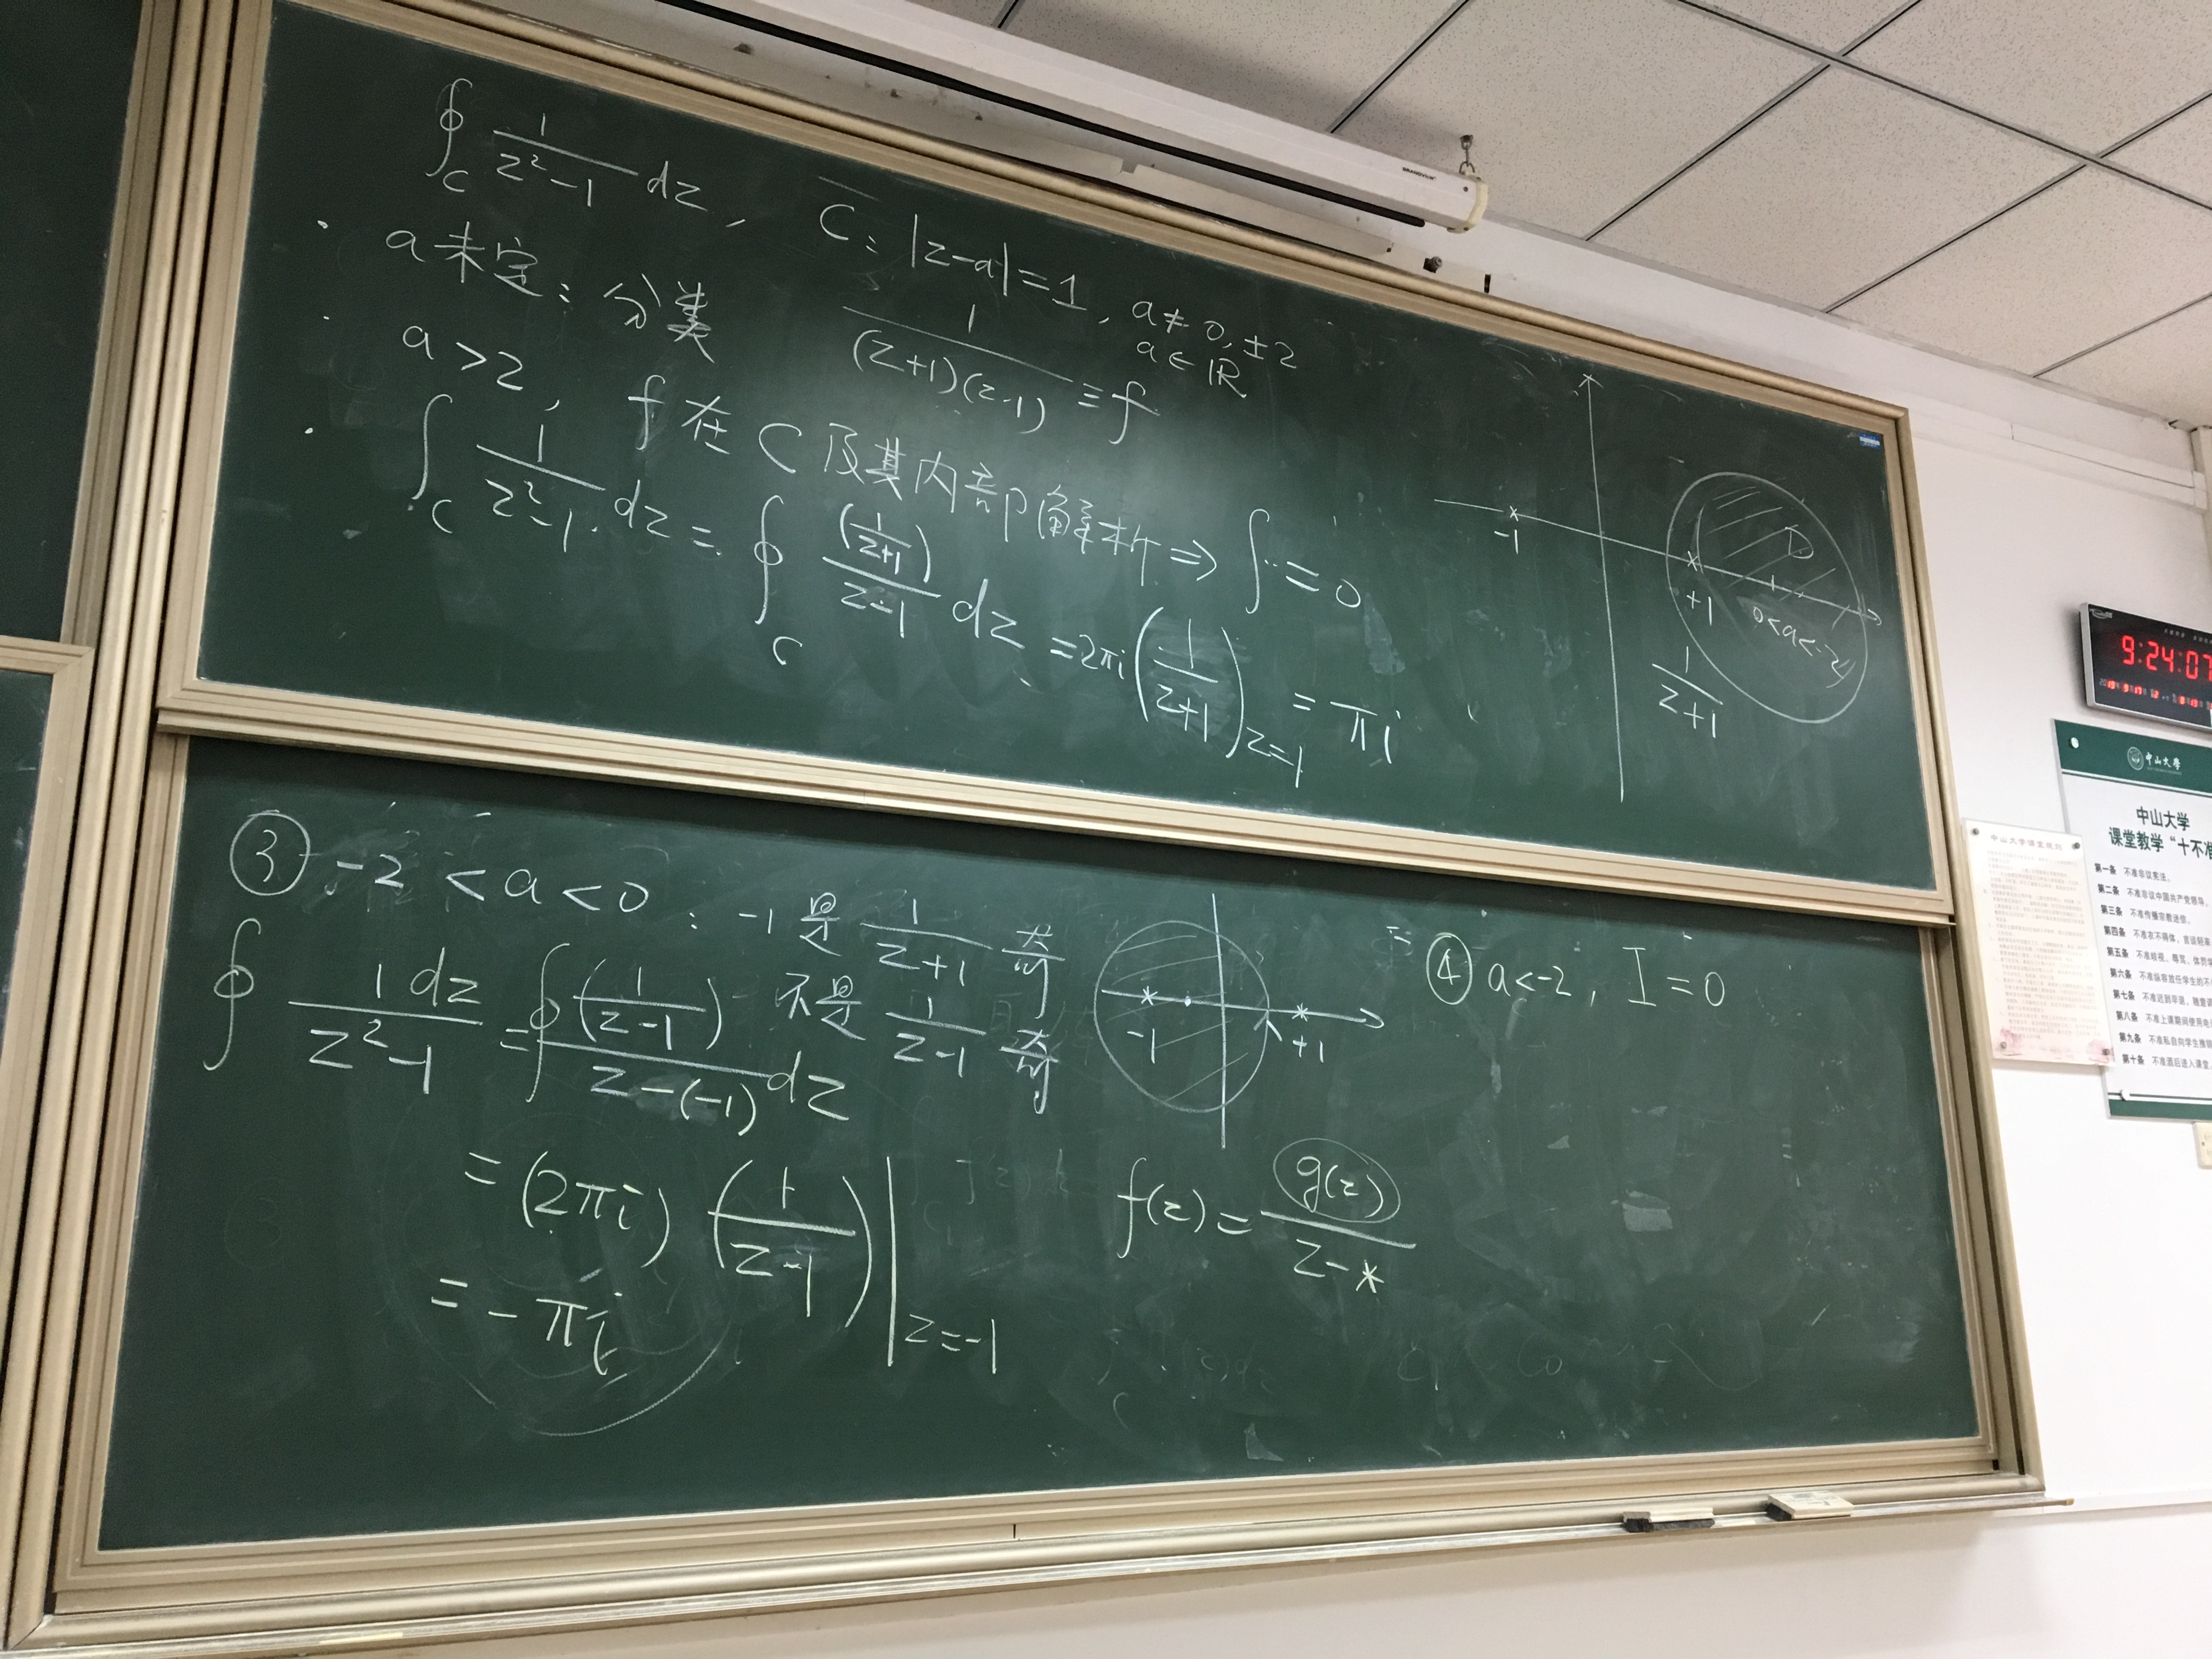 ∮_C 1/(z²-1) dz , C: |z-a|=1 , a≠0,±2
a∈ℝ
· a未定: 分类 1/((z+1)(z-1)) ≡ f
· a>2, f在C及其内部解析 ⇒ ∫…=0
· ∫_C 1/(z²-1) dz = ∮_C (1/(z+1))/(z-1) dz = 2πi (1/(z+1))_{z=1} = πi
-1
+1
D
0<a<2
1/(z+1)
③ -2<a<0 : -1是 1/(z+1) 奇
不是 1/(z-1) 奇
∮ 1dz/(z²-1) = ∮ (1/(z-1))/(z-(-1)) dz
= (2πi) (1/(z-1)) |_{z=-1}
= -πi
-1
+1
④ a<-2, I=0
f(z) = g(z)/(z-*)
BRANDVIEW
9:24:07
中山大学
中山大学
课堂教学“十不准
第一条 不准非议宪法。
第二条 不准非议中国共产党领导。
第三条 不准传播宗教迷信。
第四条 不准衣不得体,言谈粗
第五条 不准歧视、辱骂、体罚学
第六条 不准纵容放任学生的不
第七条 不准迟到早退、随意调
第八条 不准上课期间使用电
第九条 不准私自向学生推销
第十条 不准酒后进入课堂
中山大学课堂规则